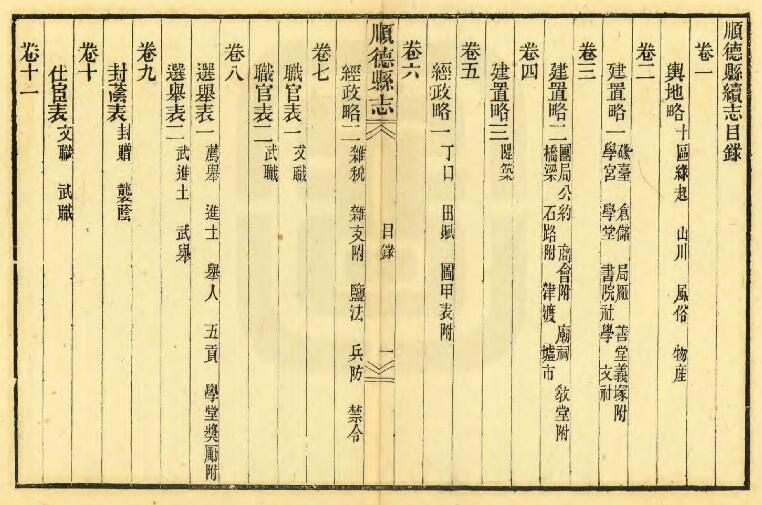 順德縣續志目錄
卷一
輿地略 十區緣起 山川 風俗 物產
卷二
建置略一 礮臺 倉儲 局廠 善堂義塚附
學宮 學堂 書院社學 文社
卷三
建置略二 團局公約 商會附 廟祠 敎堂附
橋梁 石路附 津渡 墟市
卷四
建置略三 隄築
卷五
經政略一 丁口 田賦 圖甲表附
卷六
順德縣志
目錄
一
經政略二 雜稅 雜支附 鹽法 兵防 禁令
卷七
職官表一 文職
職官表二 武職
卷八
選舉表一 薦舉 進士 舉人 五貢 學堂獎勵附
選舉表二 武進士 武舉
卷九
封蔭表 封贈 襲蔭
卷十
仕宦表 文職 武職
卷十一